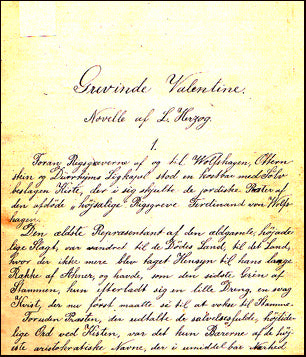 Grevinde Valentine.
Novelle af L. Herzog.
1.
Foran Rigsgreverne af og til Wolfshagen,
og Ligkapel stod en kostbar med Sølv
beslagen Kiste, der i sig skjulte de jordiske Rester af
den afdøde, højsalige Rigsgreve Ferdinand von Wolfs-
hagen.
Den ældste Repræsentant af den ældgamle, højade-
lige Slægt, var vandret til de Dødes Land, til det Land,
hvor der ikke mere blev taget Hensyn til hans lange
Række af Ahner, og havde, som den sidste Gren af
Stammen, kun efterladt sig en lille Dreng, en svag
Kvist, der nu først maatte se til at vokse til Stamme.
Foruden Præsten, der udtalte de selvfølgelige, højtide-
lige Ord ved Kisten, var det kun Bærerne af de høje
ste aristokratiske Navne, der i umiddelbar Nærhed